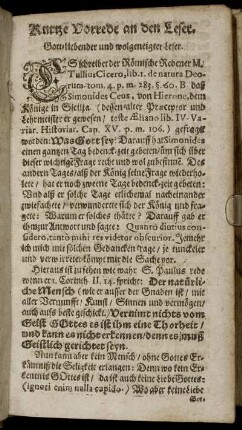 Kurtze Vorrede an den Leser.
Gott-liebender und wolgeneigter Leser.
ES schreibet der Römische Redener M.
Tullius Cicero, lib. 1. de natura Deo-
rum. tom. 4. p. m. 283. §. 60. B. daß
Simonides Ceus, von Hierone, dem
Könige in Sicilia (dessen alter Præceptor und
Lehrmeister er gewesen / teste Æliano lib. IV. Va-
riar. Historiar. Cap. XV. p. m. 106.) gefraget
worden: Was Gott sey: Darauff hat Simonides
einen gantzen Tag bedenckzeit gebeten / um sich über
dieser wichtige Frage recht und wol zubesinnē. Des
andern Tages / als der König seine Frage wiederho-
lete / hat er noch zweene Tage bedenckzeit gebeten:
Und als er solche Tage etlichemal nacheinander
zwiefachte / verwunderte sich der König und fra-
gete: Warum er solches thäte? Darauff gab er
ihm zur Antwort und sagte: Quanto diutius con-
sidero, tanto mihi res videtur obscurior. Je mehr
ich mich mit solchen Gedancken plage / je dunckeler
und verwirreter kömpt mir die Sache vor.
Hieraus ist zu sehen wie wahr S. Paulus rede
wenn er 1. Corinth. II, 14. spricht: Der natürli-
che Mensch / (wie er ausser der Gnaden ist / mit
aller Vernunfft / Kunst / Sinnen und vermögen /
auch aufs beste geschickt /) Vernimt nichts vom
Geist GOttes es ist ihm eine Thorheit /
und kann es nicht erkennen / denn es muß
Geistlich gerichtet seyn.
Nun kann aber kein Mensch / ohne Gottes Er-
käntniß die Seligkeit erlangen: Denn wo kein Er-
käntniß GOttes ist / da ist auch keine Liebe Gottes:
(ignoti enim nulla cupido.) Wo aber keine Liebe
Got-